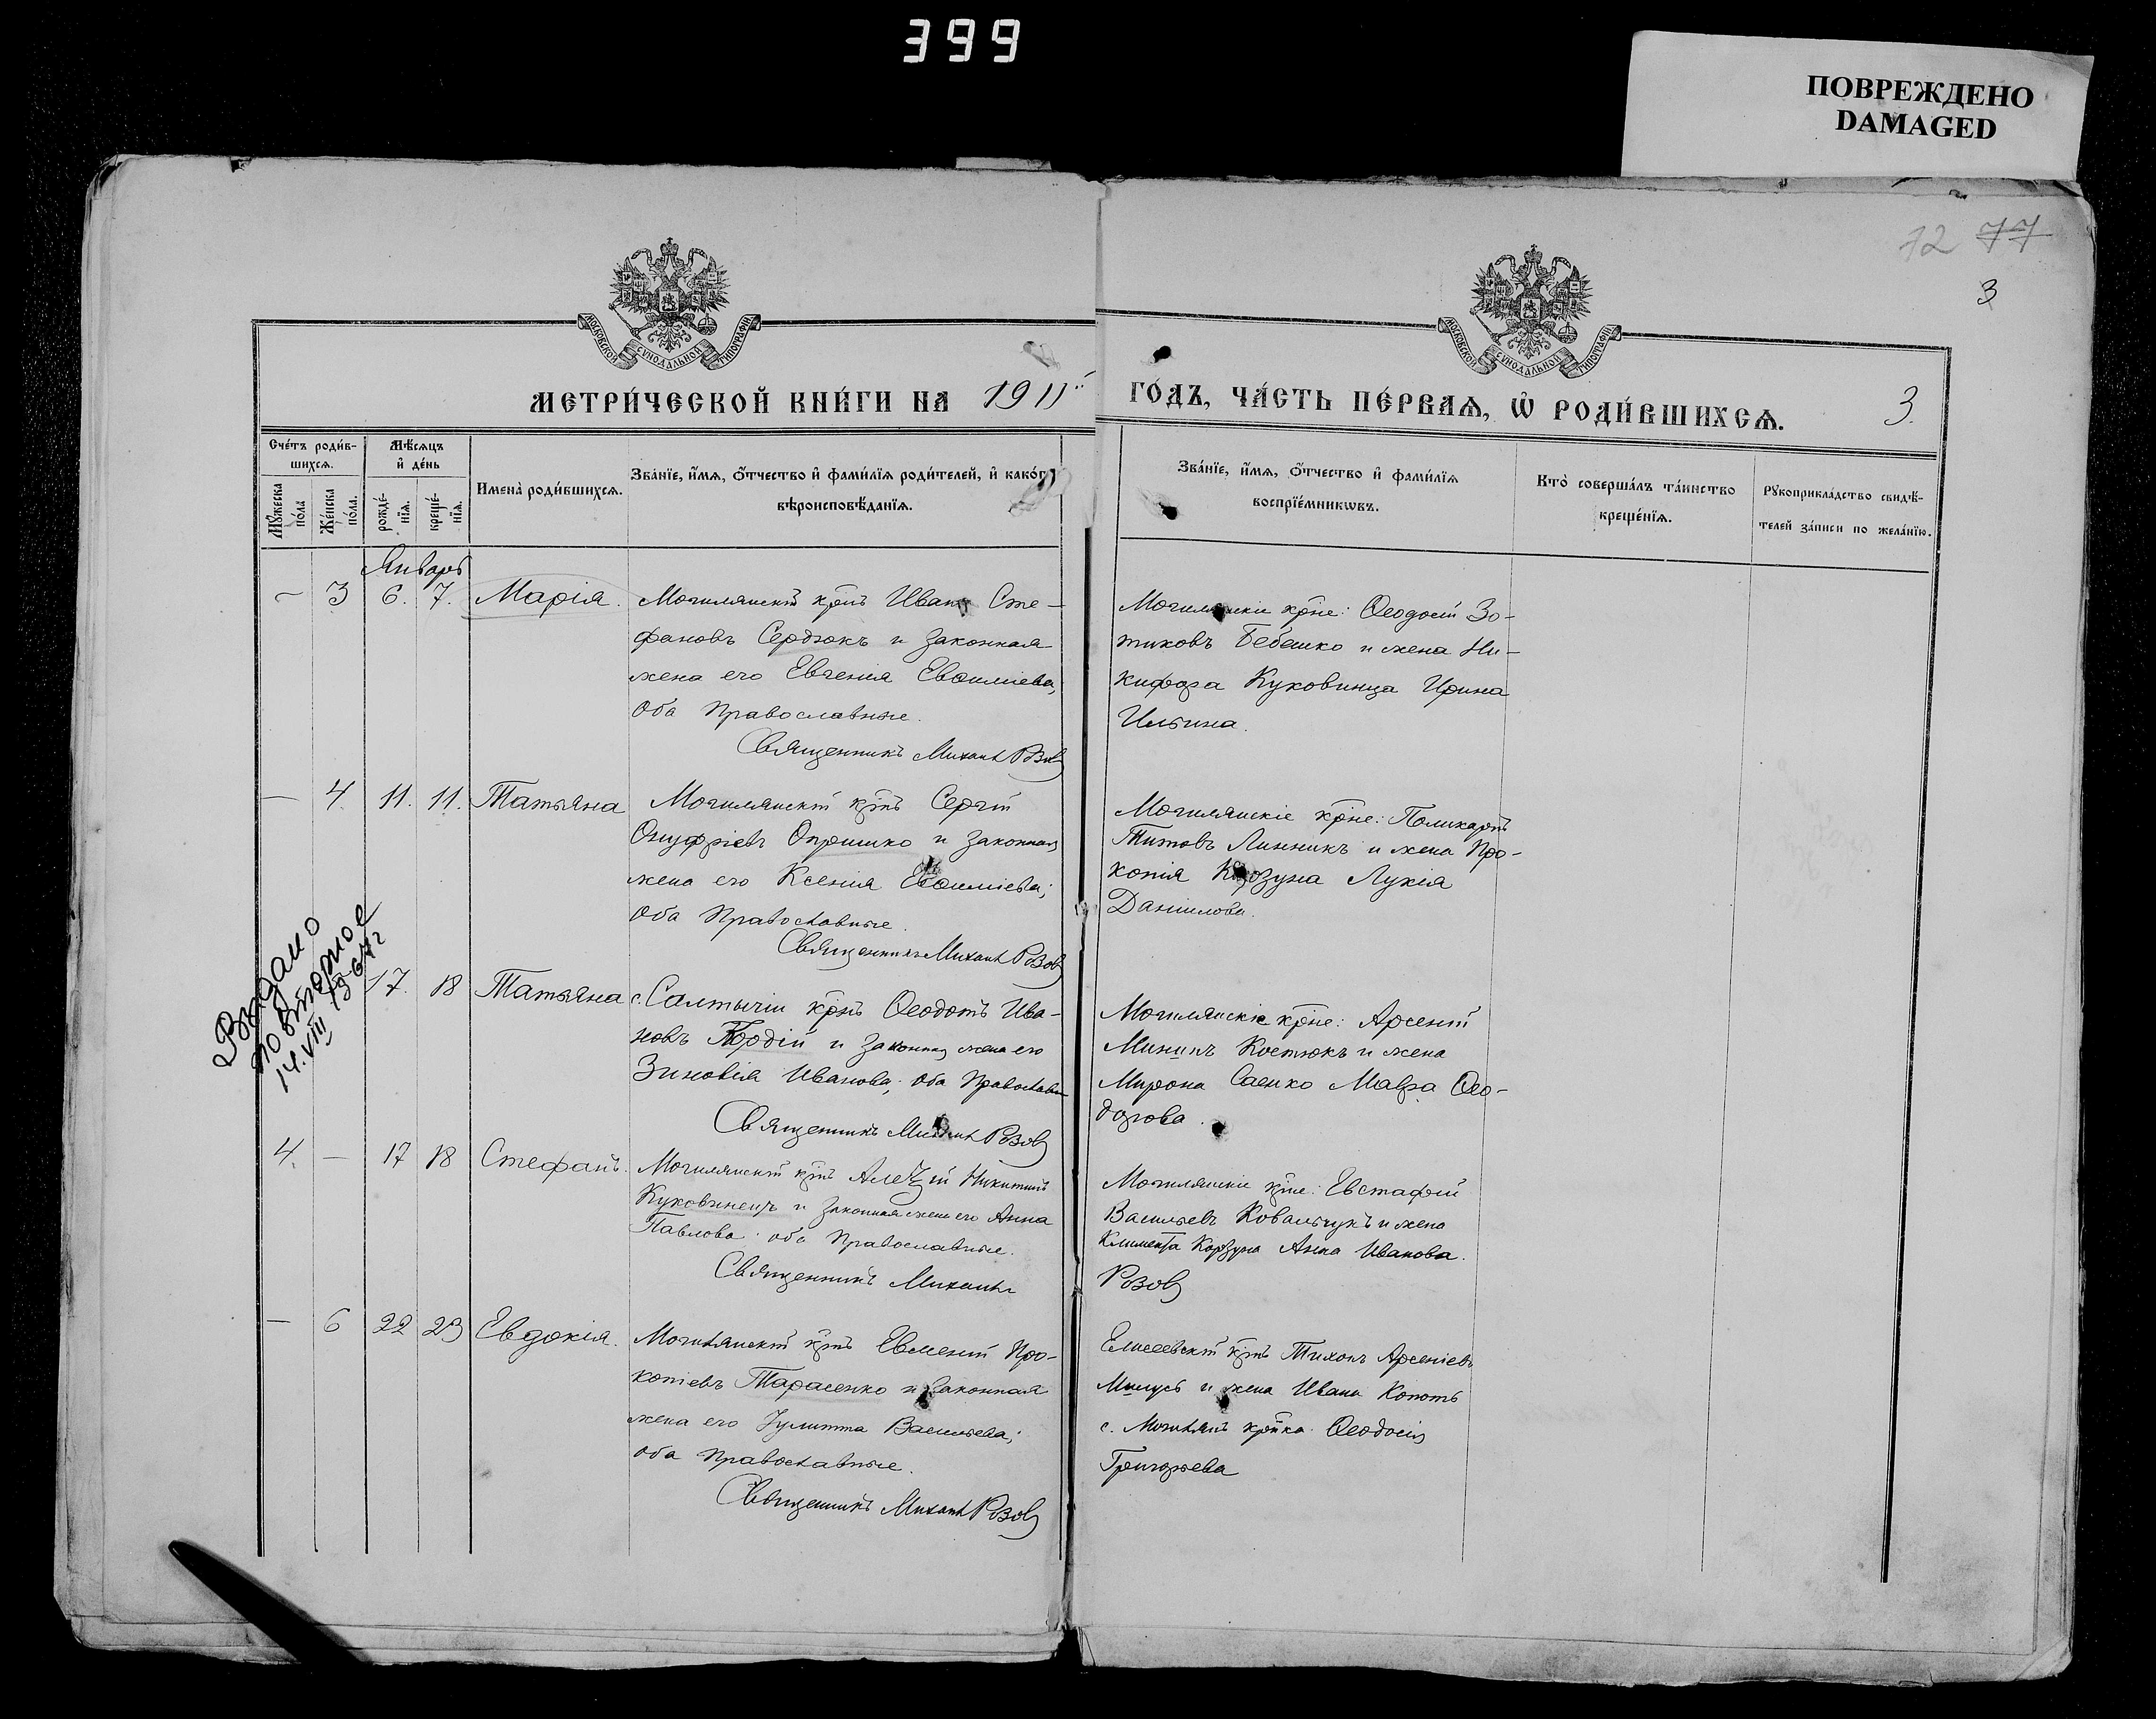 399
ПОВРЕЖДЕНО
DAMAGED
72 77
3
МОСКОВСКОЙ СѴНОДАЛЬНОЙ ТИПОГРАФІИ
МОСКОВСКОЙ СѴНОДАЛЬНОЙ ТИПОГРАФІИ
МЕТРИ́ЧЕСКОЙ КНИ́ГИ НА 1911 ГО́ДЪ, ЧА́СТЬ ПЕ́РВАѦ, Ѡ҆ РОДИ́ВШИХСѦ. 3.
Сче́тъ роди́в-
шихсѧ.
Мꙋ́жеска по́ла
Же́нска по́ла.
Мѣ́сѧцъ
и҆ де́нь
рожде́-
нїѧ.
креще́-
нїѧ.
Имена̀ роди́вшихсѧ.
Зва́нїе, и҆́мѧ, ѻ҆́тчество и҆ фами́лїѧ роди́телей, и҆ како́гѡ
вѣроисповѣ́данїѧ.
Зва́нїе, и҆́мѧ, ѻ҆́тчество и҆ фами́лїѧ
воспрїе́мникѡвъ.
Кто̀ соверша́лъ та́инство
креще́нїѧ.
Рꙋкоприкла́дство свидѣ́-
телей за́писи по жела́нїю.
Январь
— 3 6. 7. Марія.
Могилянскій крнъ Иванъ Сте-
фановъ Сердюкъ и законная
жена его Евгенія Евѳиміева;
оба Православные.
Священникъ Михаилъ Розовъ
Могилянскіе крне: Ѳеодосій Зо-
тиковъ Бебешко и жена Ни-
кифора Куковинца Ирина
Ильина.
— 4. 11. 11. Татьяна
Могилянскій крнъ Сергій
Онуфріевъ Опришко и законная
жена его Ксенія Евѳиміева;
оба Православные.
Священникъ Михаилъ Розовъ
Могилянскіе крне: Поликарпъ
Титовъ Линникъ и жена Про-
копія Корзуна Лукія
Даніилова.
Выдано
повторное
14.VIII 1967г
17. 18 Татьяна
с. Салтычіи крнъ Ѳеодотъ Ива-
новъ Гордій и законная жена его
Зиновія Иванова; оба Православные
Священникъ Михаилъ Розовъ
Могилянскіе крне: Арсеній
Мининъ Костюкъ и жена
Мирона Саенко Мавра Ѳео-
дорова.
4. — 17 18 Стефанъ.
Могилянскій крнъ Алексій Никитинъ
Куковинецъ и законная жена его Анна
Павлова: оба Православные.
Священникъ Михаилъ
Могилянскіе крне: Евстафій
Васильевъ Ковальчукъ и жена
Климента Корзуна Анна Иванова.
Розовъ
— 6 22 23 Евдокія.
Могилянскій крнъ Евменій Про-
копіевъ Тарасенко и законная
жена его Іулитта Васильева;
оба Православные.
Священникъ Михаилъ Розовъ
Елисеевскій крнъ Тихонъ Арсеніевъ
Милусь и жена Ивана Копоть
с. Могилянъ крнка Ѳеодосія
Григорьева